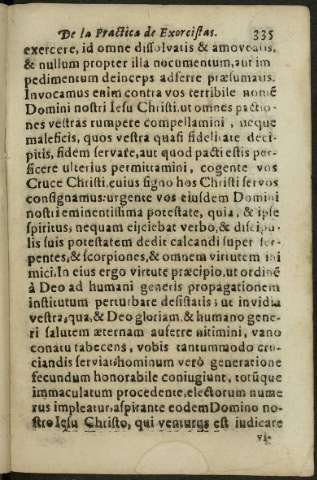 De la Practica de Exorcistas. 335
exercere, id omne dissolvatis & amoveatis,
& nullum propter illa nocumentum, aut im
pedimentum deinceps adferre præsumatis.
Invocamus enim contra vos terribile nomē
Domini nostri Iesu Christi. ut omnes pactio-
nes vestras rumpere compellamini, neque
maleficis, quos vestra quasi fidelitate deci-
pitis, fidem servare, aut quod pacti estis per-
ficere ulterius permittamini, cogente vos
Cruce Christi, cuius signo hos Christi servos
consignamus: urgente vos eiusdem Domini
nostri eminentissima potestate, quia, & ipse
spiritus; nequam eijciebat verbo, & discipu-
lis suis potestatem dedit calcandi super ser-
pentes, & scorpiones, & omnem virtutem ini
mici. In eius ergo virtute præcipio, ut ordinē
à Deo ad humani generis propagationem
institutum perturbare desistatis; ut invidia
vestra, qua, & Deo gloriam, & humano gene-
ri salutem æternam auferre nitimini, vano
conatu tabescens, vobis tantummodo cru-
ciandis serviat: hominum verò generatione
secundum honorabile coniugiunt, totūque
immaculatum procedente, electorum nume
rus impleatur, aspirante eodem Domino no-
stro Iesu Christo, qui venturus est iudicare
vi-